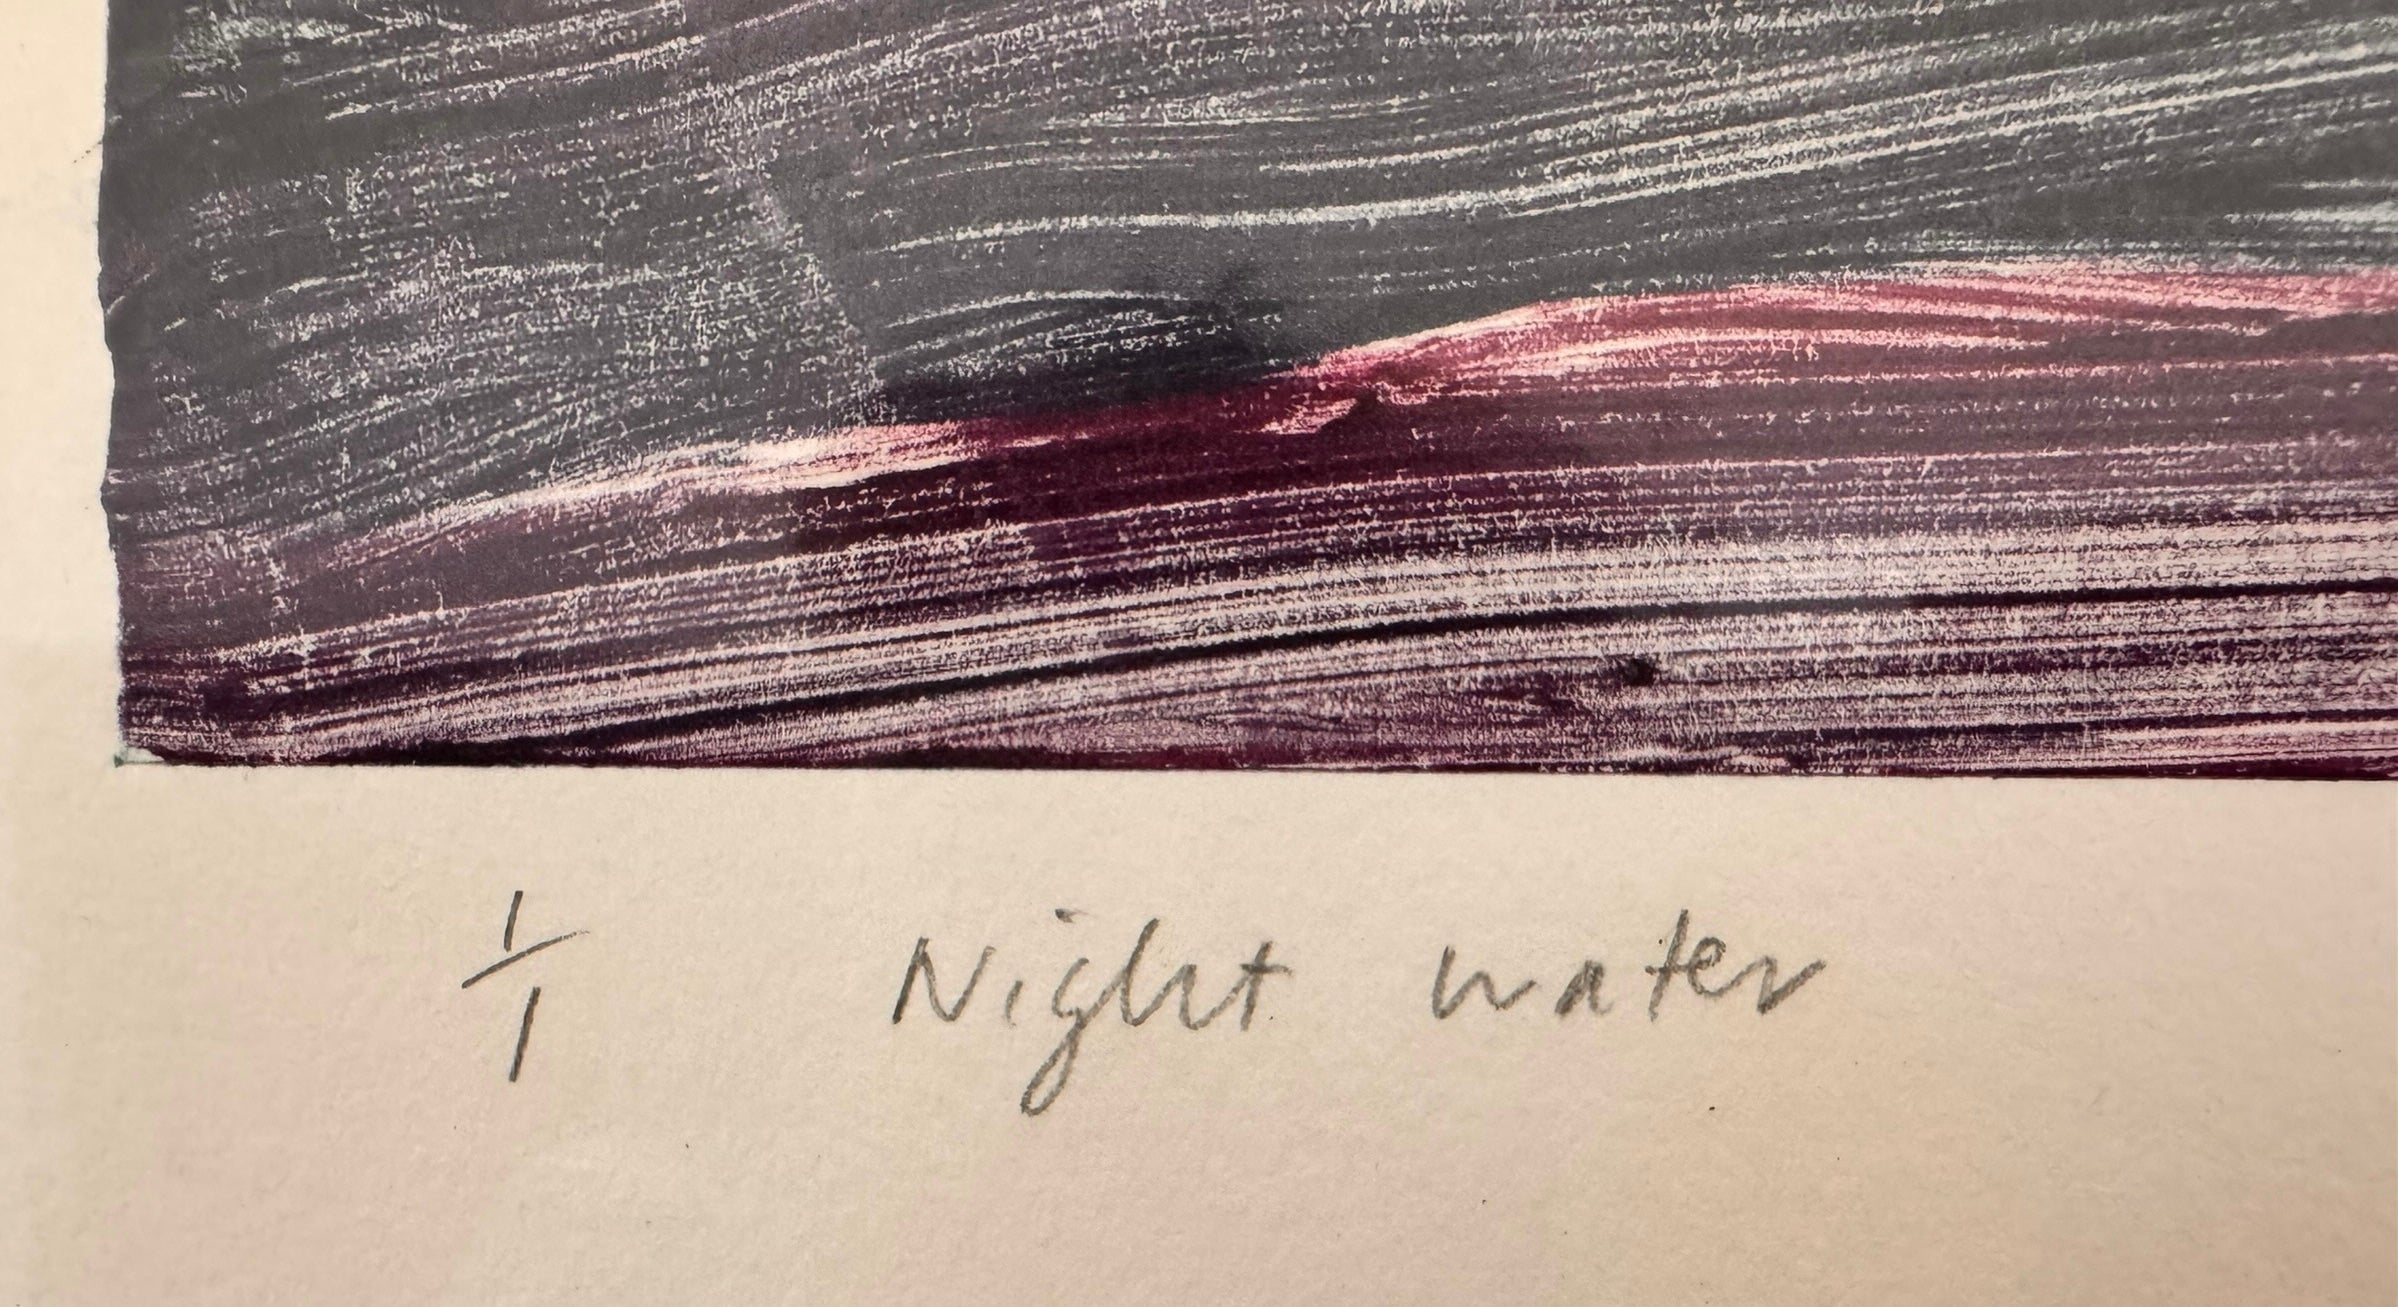 1/1 Night water